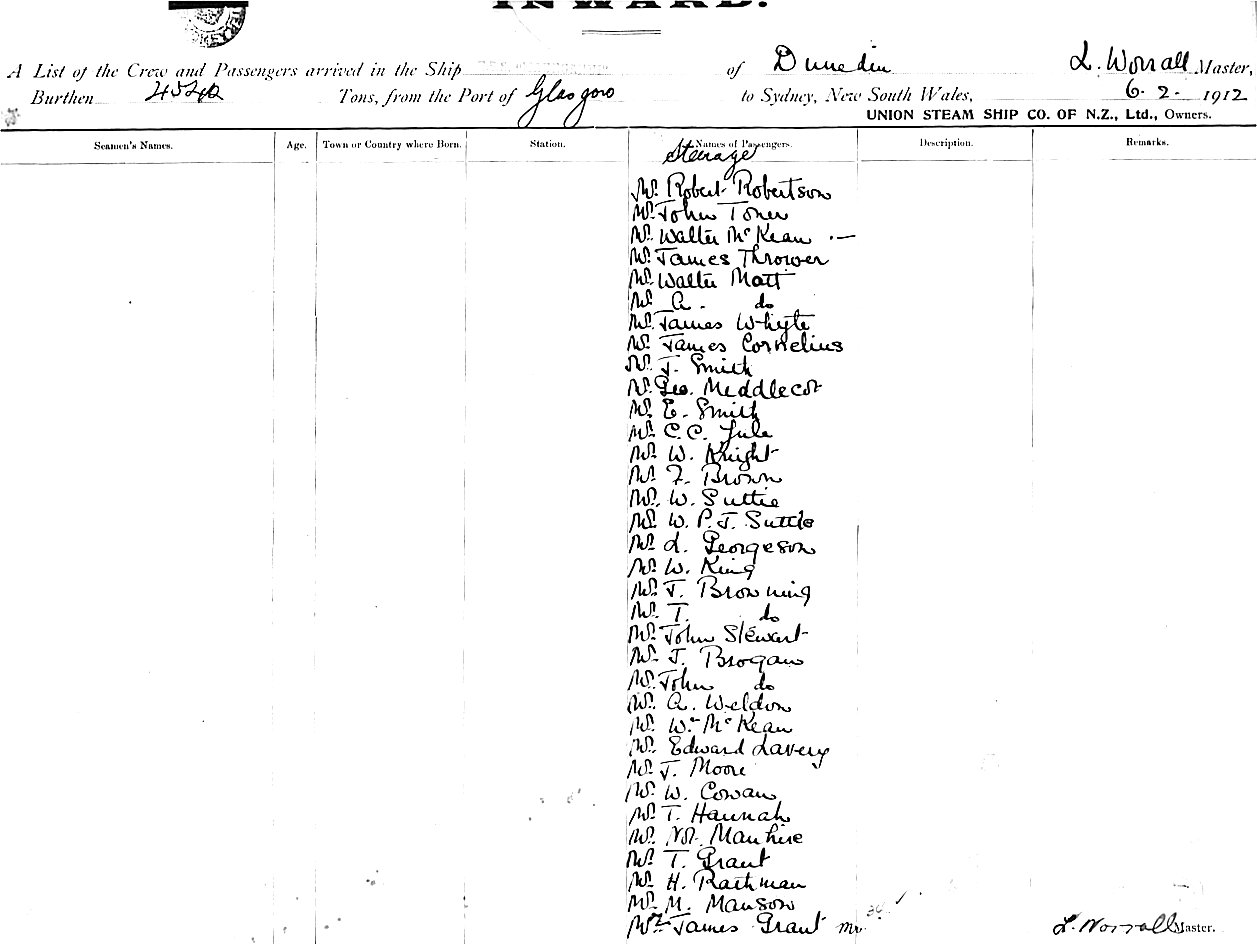 INWARD.
A List of the Crew and Passengers arrived in the Ship of Dunedin L. Worrall Master,
Burthen Tons, from the Port of Glasgow to Sydney, New South Wales, 6. 2. 1912
UNION STEAM SHIP CO. OF N.Z., Ltd., Owners.
Seamen's Names. Age. Town or Country where Born. Station. Names of Passengers. Description. Remarks.
Steerage
Mr. Robert Robertson
Mr. John Toner
Mr. Walter McKean .—
Mr. James Thrower
Mr. Walter Matt
Mr. A. do
Mr. James Whyte
Mr. James Cornelius
Mr. J. Smith
Mr. Geo. Meddlecot
Mr. E. Smith
Mr. C.C. Jule
Mr. W. Knight
Mr. F. Brown
Mr. W. Suttie
Mr. W. P. J. Suttle
Mr. L. Georgeson
Mr. W. King
Mr. J. Browning
Mr. T. do
Mr. John Stewart
Mr. J. Brogan
Mr. John do
Mr. A. Weldon
Mr. Wm. McKean
Mr. Edward Lavery
Mr. J. Moore
Mr. W. Cowan
Mr. T. Hannah
Mr. Manhire
Mr. T. Grant
Mr. H. Rathman
Mr. M. Manson
Mr. James Grant
L. Worrall Master.